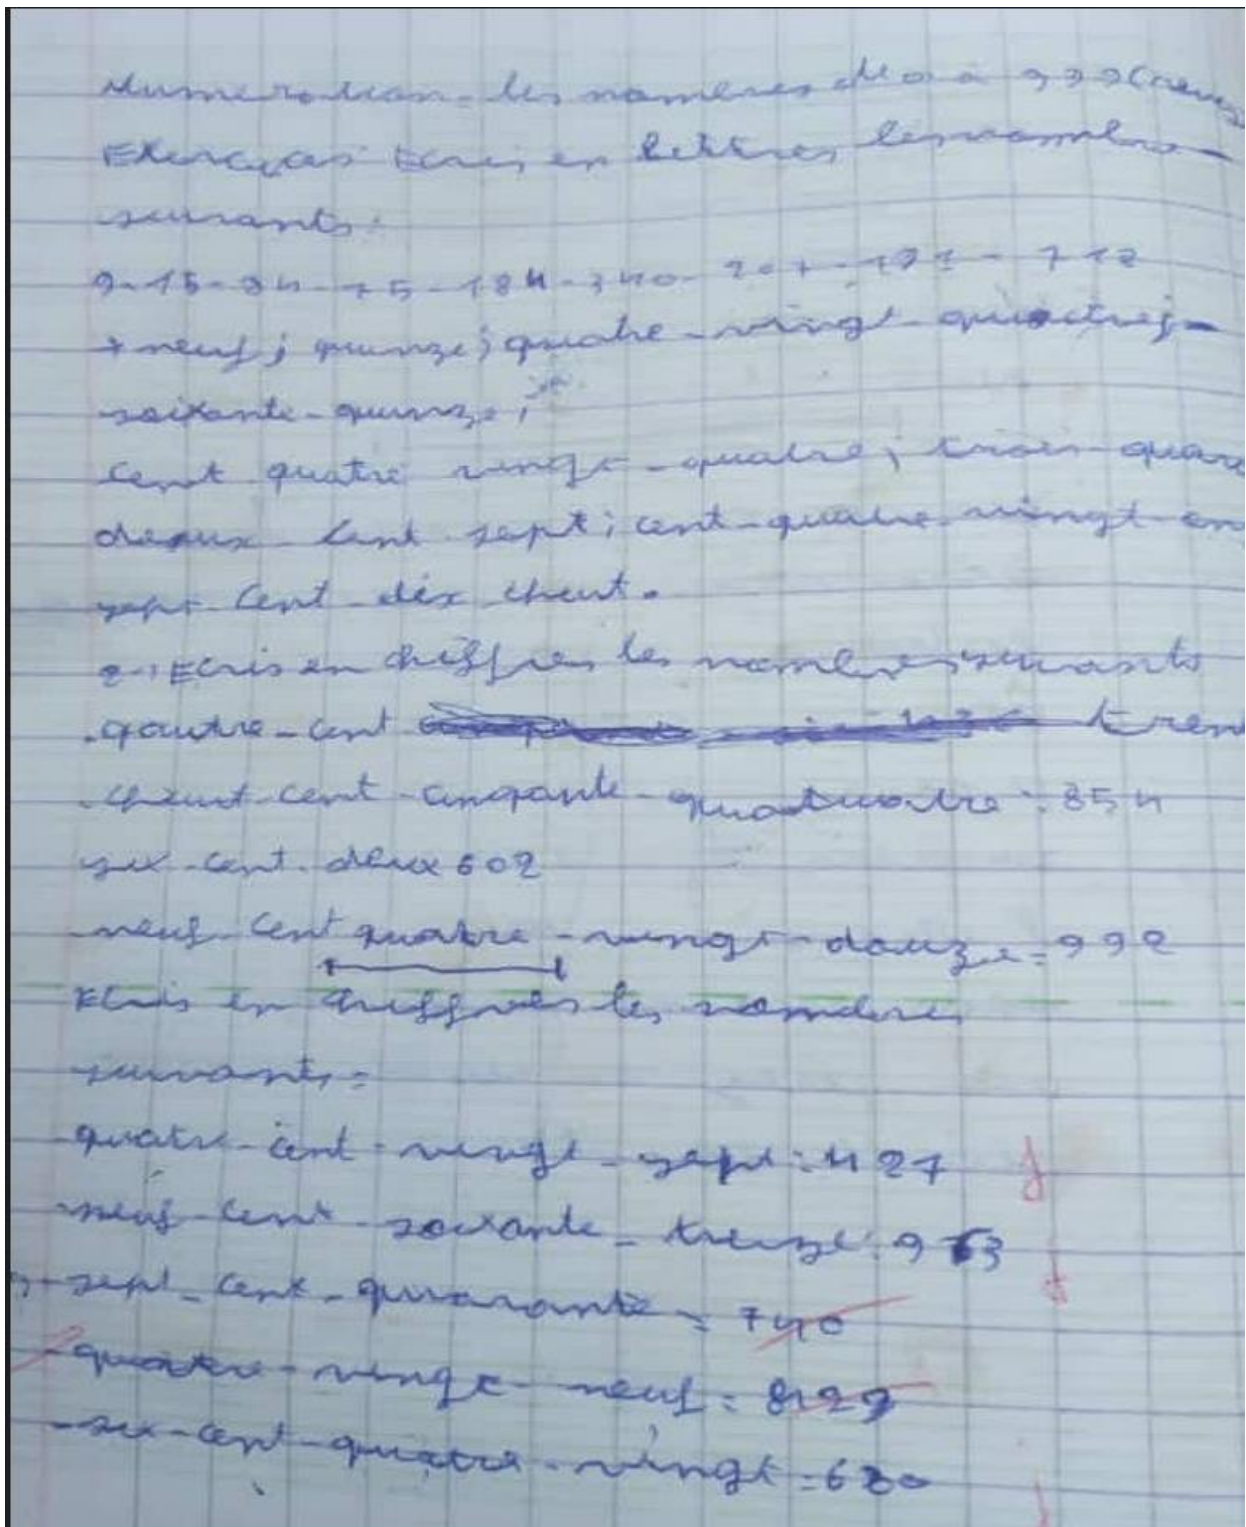 Numeration - les nombres de 0 à 999 (neuf
Exercices Ecris en lettres les nombres
suivants :
9-15-84-75-184-340-207-191-718
+ neuf ; quinze ; quatre-vingt quatre ;
soixante-quinze ;
Cent quatre vingt-quatre ; trois-quara
deux-cent sept ; cent-quatre-vingt-on
sept-cent-dix-chuit.
2-) Ecris en chiffres les nombres suivants
. qautre-cent trent
. chuit-cent-cinqante-quatre : 854
six-cent-deux 602
-neuf-cent quatre-vingt-douze = 992
Ecris en chiffres les nombres
suivants =
quatre-cent-vingt-sept : 427
-neuf-cent-soixante-treize : 973
-sept-cent-quuarante = 740
-quatre-vingt-neuf = 8129
-six-cent-quatre-vingt = 680